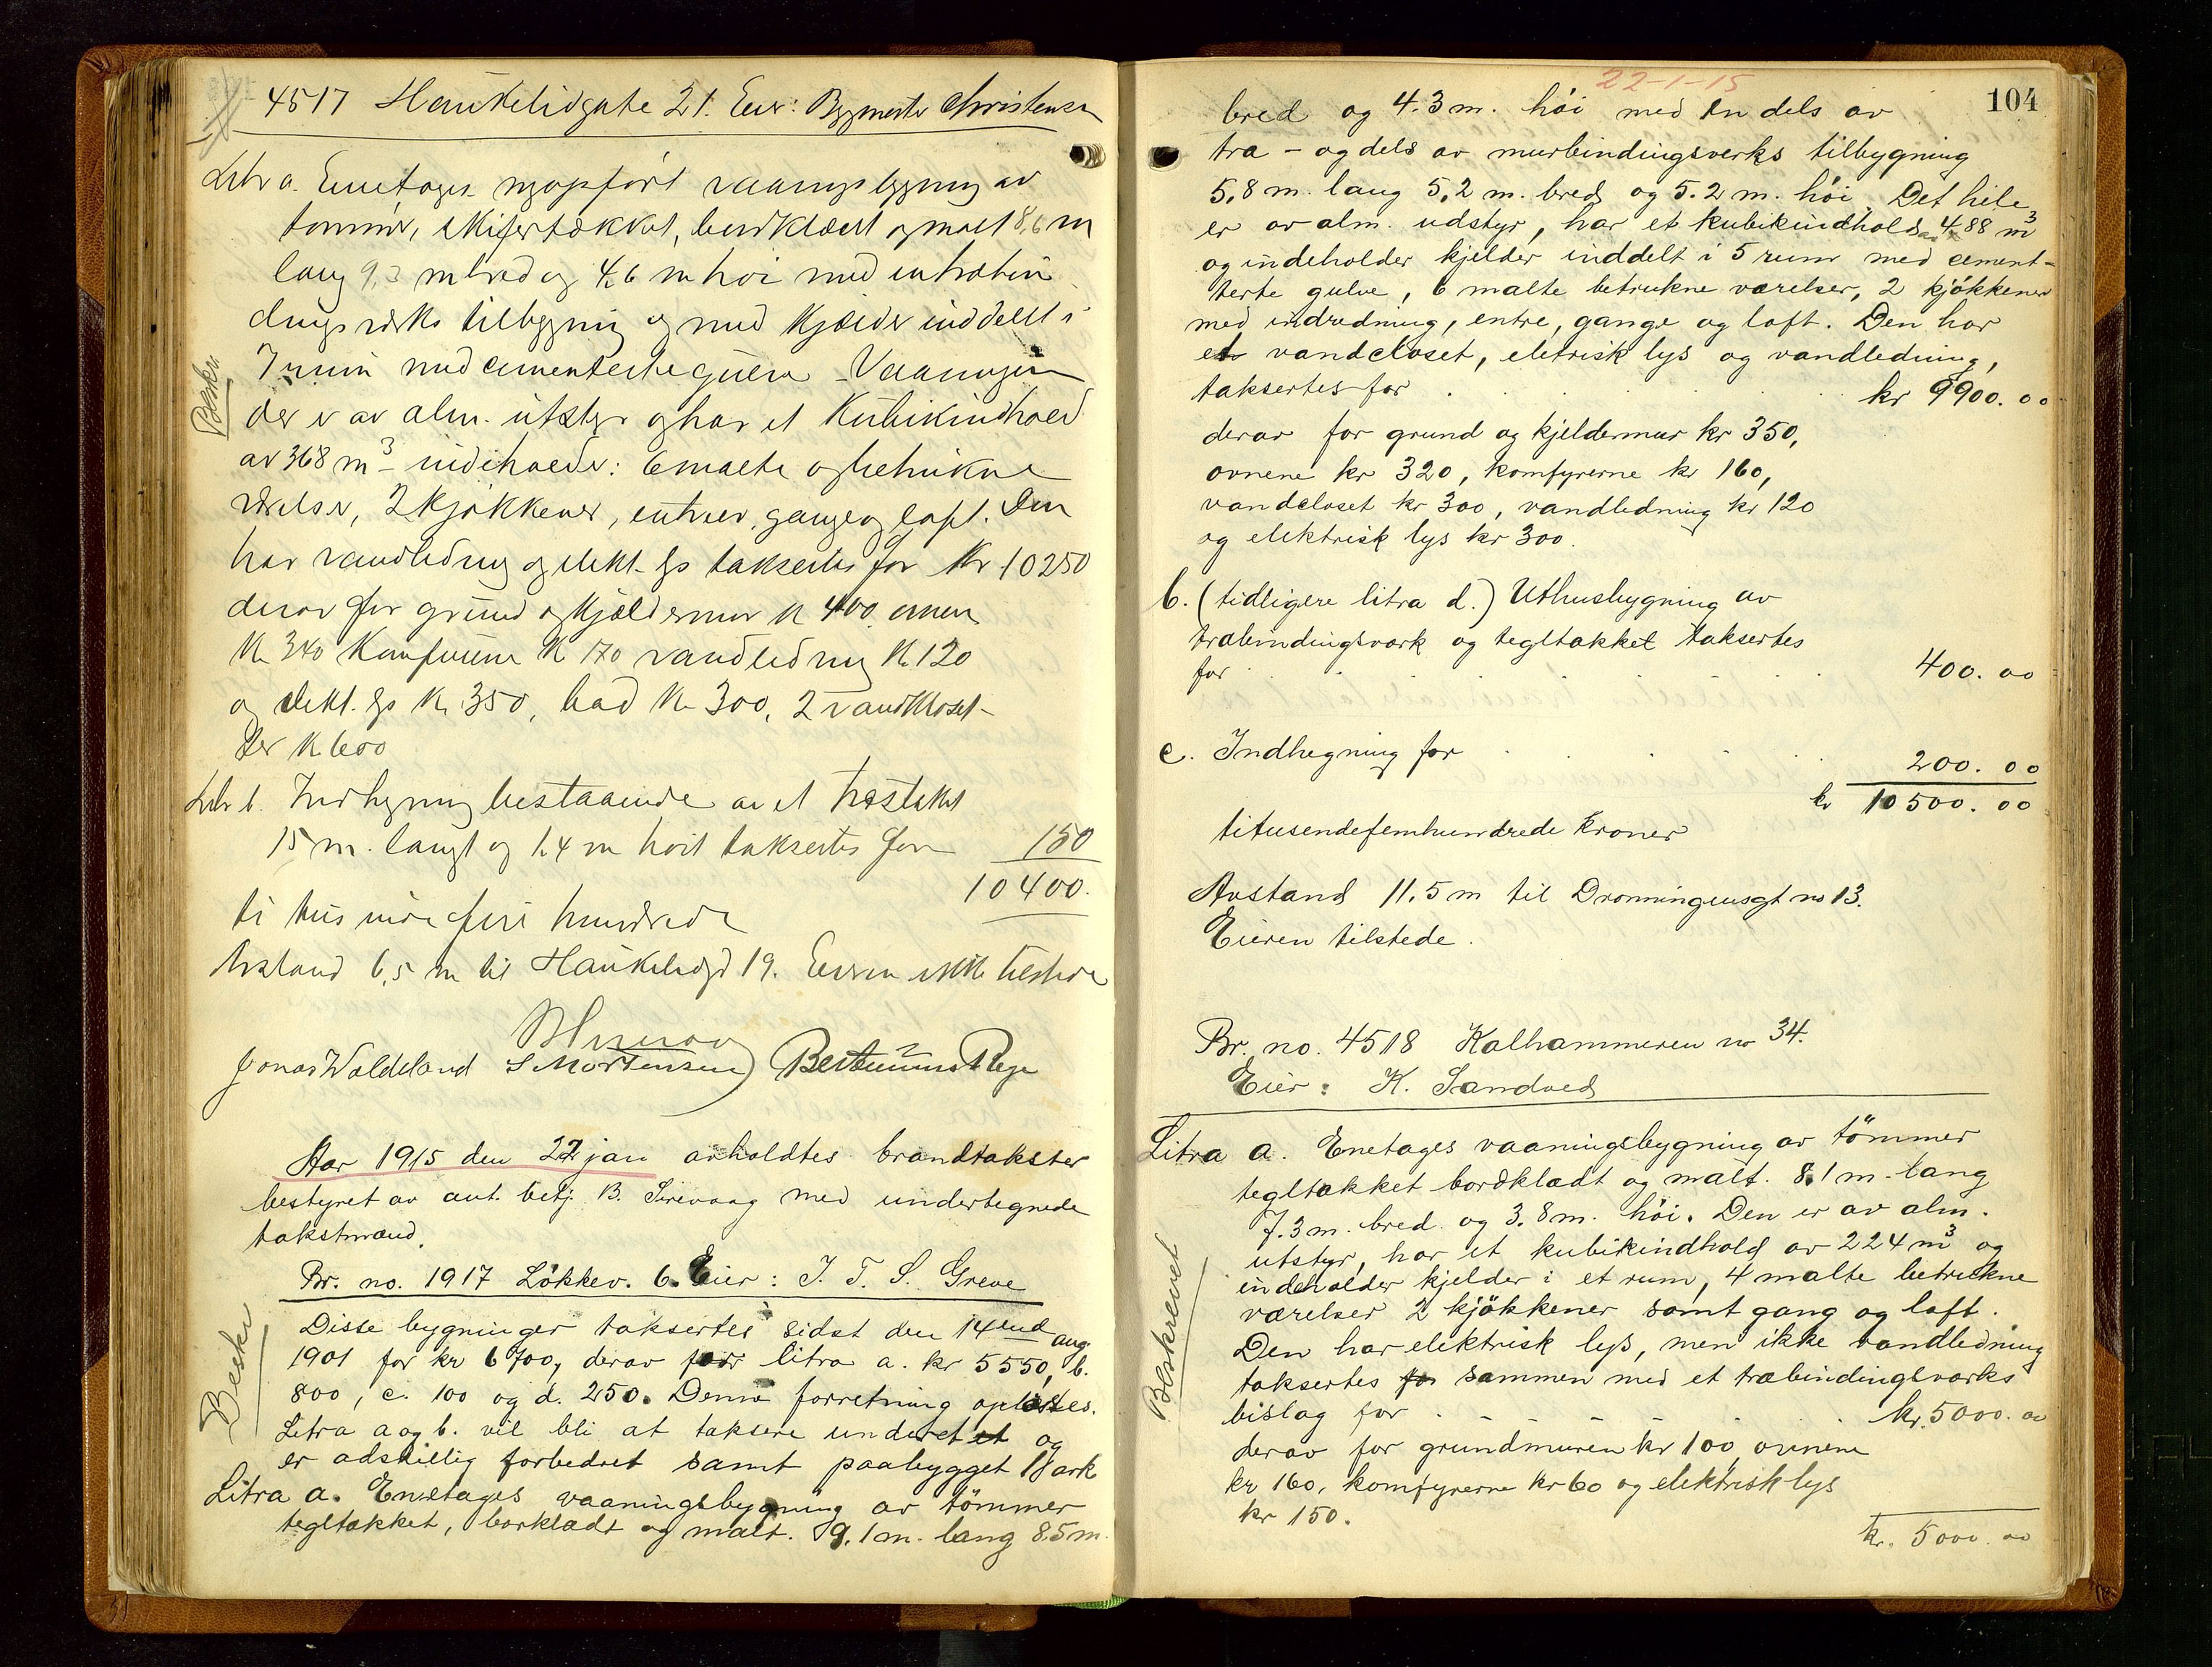 4517 Haukelidgate 21. Eier: Bygmester Christensen
Litr a. Enetages nyopført vaaningsbygning av
tømmer, skifertækket, bordklædt og malt 8,6 m
lang 9,3 m bred og 4,6 m høi med en træbin
dingsverks tilbygning og med kjælder inddelt i
7 rum med cementerte gulve. Vaaningen
der er av alm. utstyr og har et Kubikindhold
av 368 m3 indeholder: 6 malte og betrukne
værelser, 2 kjøkkener, entreer, gange og loft. Den
har vandledning og elekt. lys takseres for Kr 10250
derav for grund og kjældermur kr 400. ovnen
kr 340 Komfurene kr 170 vandledning kr 120
og elekt. lys kr 350, bad kr 300, 2 vandkloset-
ter kr 600
Beskr.
Litr b. Indhegning bestaaende av et træstaket
15 m. langt og 1,4 m høit takseres for 150
10400.
ti tusinde fire hundrede
Avstand 6,5 m til Haukelidgt 19. Eieren ikke tilstede
Jonas Waldeland S Mortensen
Aar 1915 den 22 jan avholdtes brandtakster
bestyret av aut. betj. B. Sirevaag med undertegnede
takstmænd.
Br. no. 1917 Løkkev. 6. Eier: J. T. S. Greve
Beskr
Disse bygninger taksertes sidst den 14end aug.
1901 for kr 6700, derav for litra a. kr 5550, b.
800, c. 100 og d. 250. Denne forretning opløstes.
Litra a og b. vil bli at taksere under et og
er adskillig forbedret samt paabygget 1 ark
Litra a. Enetages vaaningsbygning av tømmer
tegltækket, borklædt og malt. 9.1 m. lang 8.5 m.
22-1-15
104
bred og 4.3 m. høi med en dels av
træ - og dels av murbindingsverks tilbygning
5,8 m. lang 5,2 m. bred og 5.2 m. høi. Det hele
er av alm. udstyr, har et kubikindhold 488 m3
og indeholder kjelder inddelt i 5 rum med cement-
terte gulve, 6 malte betrukne værelser, 2 kjøkkener
med indredning, entre, gange og loft. Den har
et vandcloset, eletrisk lys og vandledning,
taksertes for . . . . kr 9900.00
derav for grund og kjeldermur kr 350,
ovnene kr 320, komfyrerne kr 160,
vandcloset kr 300, vandledning kr 120
og elektrisk lys kr 300.
b. (tidligere litra d.) Uthusbygning av
træbindingsværk og tegltækket taksertes
for . . . . 400.00
c. Indhegning for . . . . 200.00
kr 10500.00
titusendefemhundrede kroner
Avstand 11.5 m til Dronningensgt no 13.
Eieren tilstede.
Br. no. 4518 Kalhammeren no 34.
Eier: K. Sandved
Litra a. Enetages vaaningsbygning av tømmer
tegltækket bordklædt og malt. 8.1 m. lang
7.3 m. bred og 3.8 m. høi. Den er av alm.
utstyr, har et kubikindhold av 224 m3 og
indeholder kjelder i et rum, 4 malte betrukne
værelser 2 kjøkkener samt gang og loft.
Den har elektrisk lys, men ikke vandledning
taksertes for sammen med et træbindingsværks
bislag for . . . . kr. 5000.00
Beskrevet
derav for grundmuren kr 100, ovnene
kr 160, komfyrerne kr 60 og elektrisk lys
kr 150.
kr. 5000.00